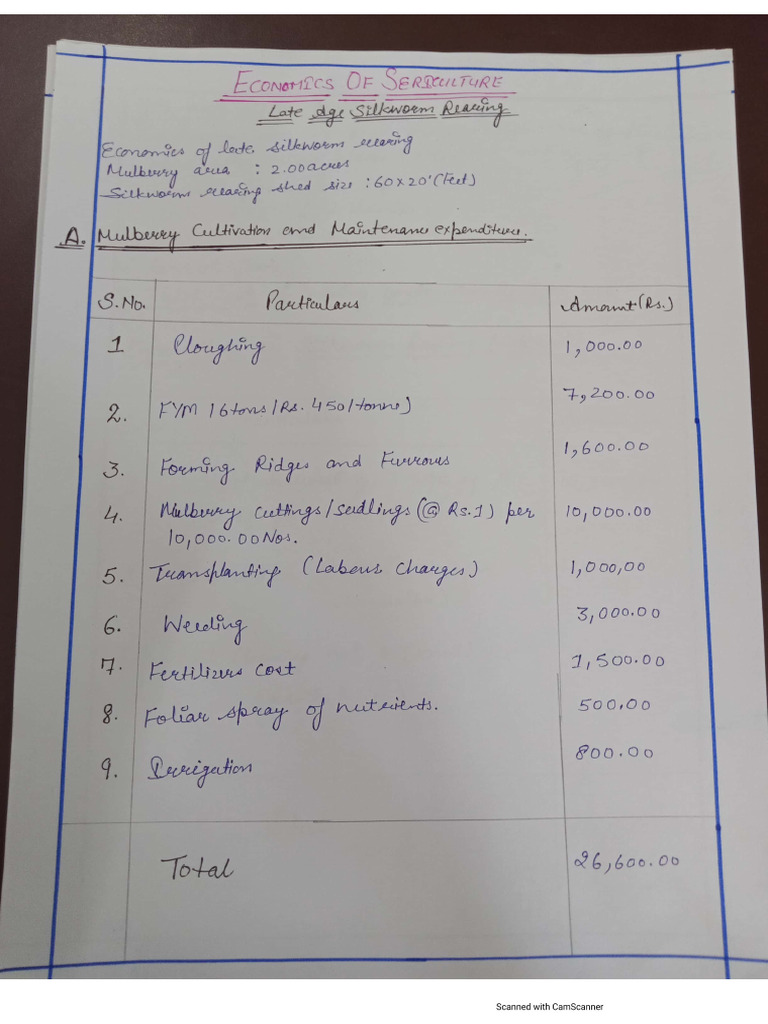 ECONOMICS OF SERICULTURE
Late Age Silkworm Rearing
Economics of late silkworm rearing
Mulberry area : 2.00 acres
Silkworm rearing shed size : 60 x 20' (Feet)
A. Mulberry Cultivation and Maintenance expenditure.
S.No. Particulars Amount (Rs.)
1 Cloughing 1,000.00
2. FYM 16tons/Rs. 450/tonne) 7,200.00
3. Forming Ridges and Furrows 1,600.00
4. Mulberry cuttings/seedlings (@ Rs.1) per 10,000.00
10,000.00Nos.
5. Transplanting (Labour charges) 1,000,00
6. Weeding 3,000.00
7. Fertilizers cost 1,500.00
8. Foliar spray of nutrients. 500.00
9. Irrigation 800.00
Total 26,600.00
Scanned with CamScanner